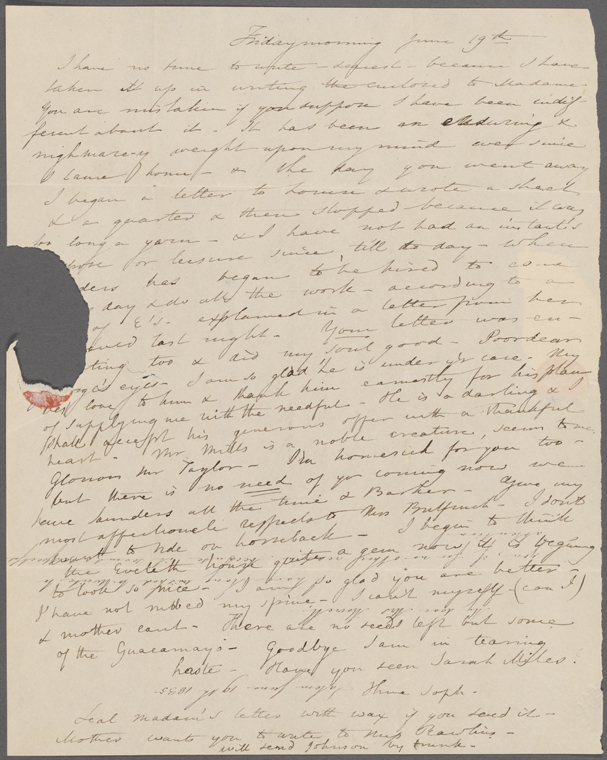 Friday morning June 19th
I have no time to write - dearest - because I have
taken it up in writing the enclosed to Madame
You are mistaken if you suppose I have been indif
ferent about it. It has been an enduring &
nightmare-y weight upon my mind ever since
I came home - & the day you went away
I began a letter to & wrote a sheet
& a quarter & then stopped because it was
too long a yarn - & I have not had an instant's
or leisure since, till to day - When
has began to be hired to come
day & do all the work - according to a
of E's. explained in a letter from her
last night. Your letter was en-
too & did my soul good - Poor dear
eyes. I am so glad he is under yr care. My
love to him & thank him earnestly for his plan
of supplying me with the needful - He is a darling & I
shall accept his generous offer with a thankful
heart - Mr Mills is a noble creature, seems to me.
Glorious Mr Taylor - I'm homesick for you too -
but there is no need of yr coming now we
have all the time & Barker - Give my
most affectionate respects to Mrs I don't
to ride on horseback - I begin to think
the Eveleth house quite a gem now it is begining
to look so nice - I am so glad you are better -
I have not my spine - I cant myself (can I)
& mother cant - There are no seeds left but some
of the Guacamayo - Goodbye I am in tearing
haste - Have you seen Sarah Miles?
Thine Soph -
Seal Madam's letter with wax if you send it -
Mother wants you to write to Miss Rawlins -
will send Johnson by trunk -